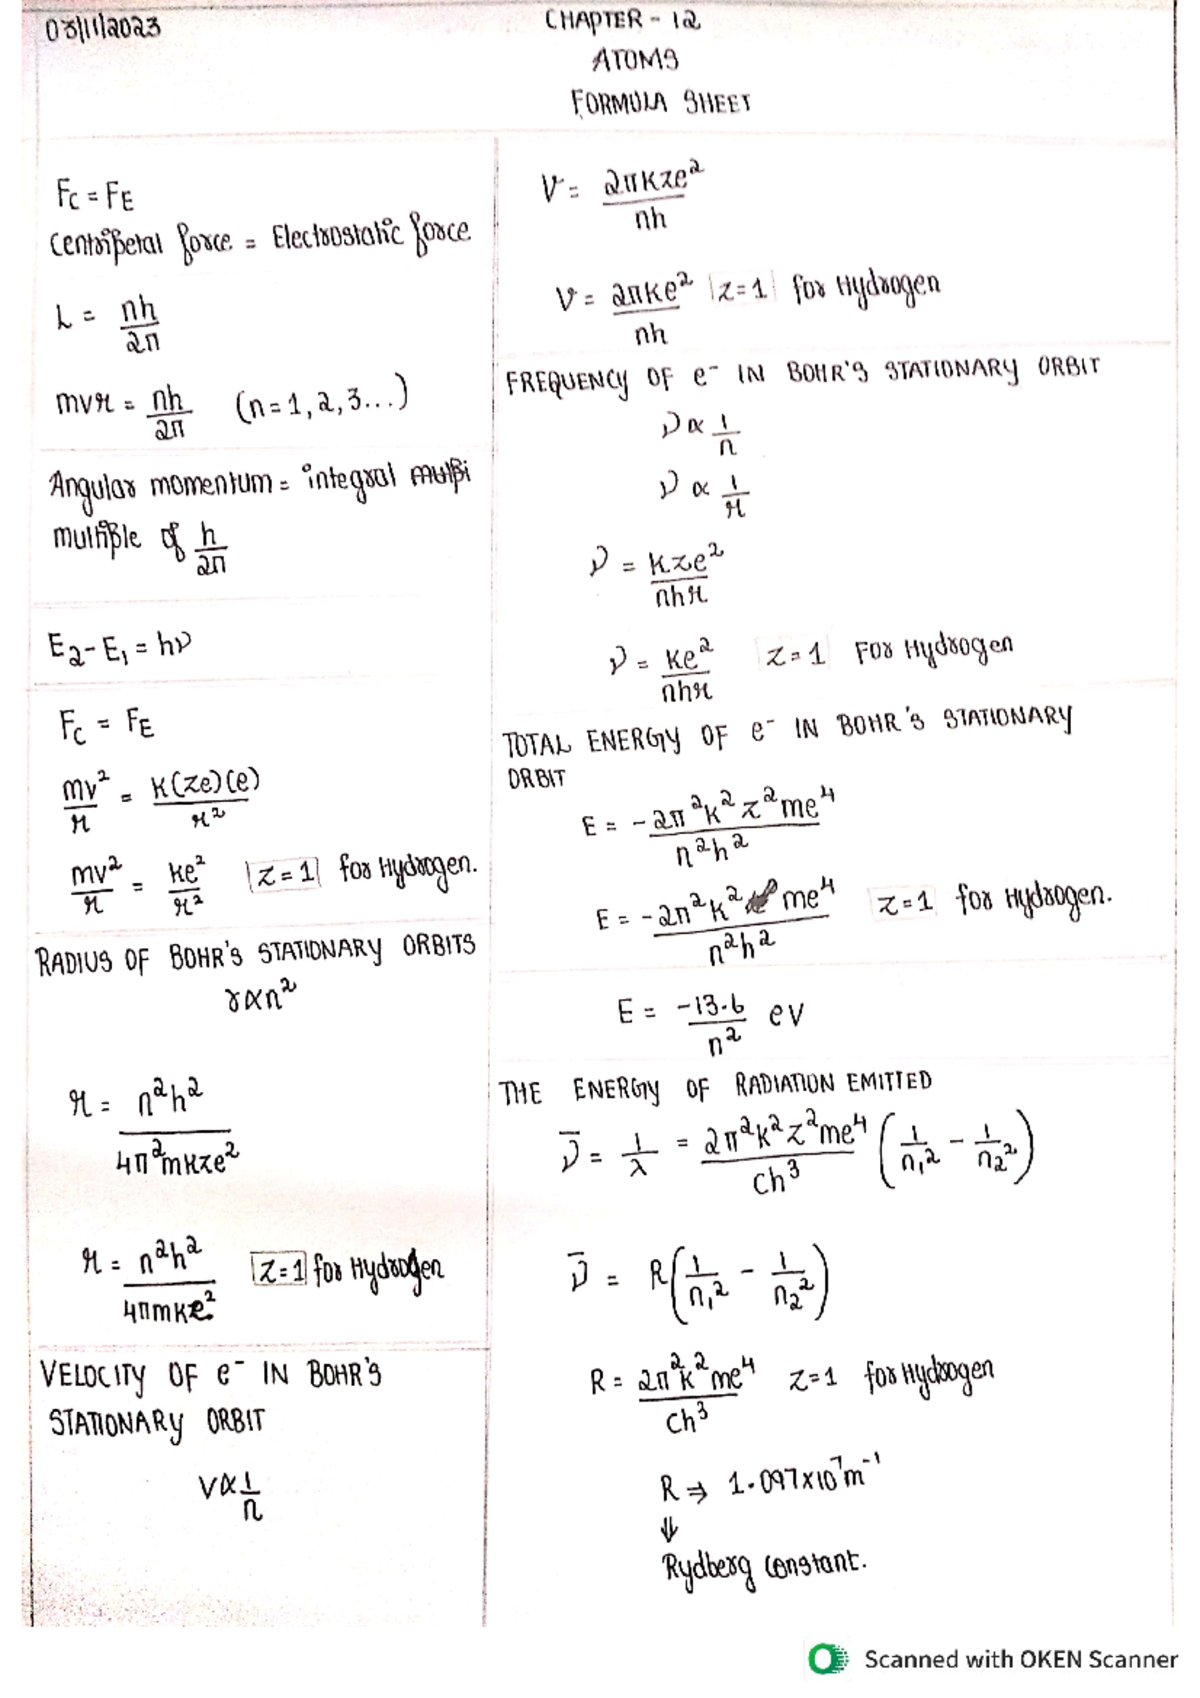 03/11/2023
CHAPTER - 12
ATOMS
FORMULA SHEET
Fc = FE
Centripetal force = Electrostatic force
L = nh/2π
mvr = nh/2π (n = 1, 2, 3...)
Angular momentum = integral multpi
multiple of h/2π
E₂ - E₁ = hν
Fc = FE
mv²/r = K(ze)(e)/r²
mv²/r = ke²/r² z = 1 for Hydrogen.
RADIUS OF BOHR'S STATIONARY ORBITS
r ∝ n²
r = n²h²/4π²mkze²
r = n²h²/4πmke² z=1 for Hydrogen
VELOCITY OF e⁻ IN BOHR'S
STATIONARY ORBIT
V ∝ 1/n
V = 2πkze²/nh
V = 2πke²/nh z=1 for Hydrogen
FREQUENCY OF e⁻ IN BOHR'S STATIONARY ORBIT
ν ∝ 1/n
ν ∝ 1/r
ν = kze²/nhr
ν = ke²/nhr z=1 For Hydrogen
TOTAL ENERGY OF e⁻ IN BOHR'S STATIONARY
ORBIT
E = -2π²k²z²me⁴/n²h²
E = -2π²k² me⁴/n²h² z=1 for Hydrogen.
E = -13.6/n² eV
THE ENERGY OF RADIATION EMITTED
ν̄ = 1/λ = 2π²k²z²me⁴/ch³ (1/n₁² - 1/n₂²)
ν̄ = R(1/n₁² - 1/n₂²)
R = 2π²k²me⁴/ch³ z=1 for Hydrogen
R ⇒ 1.097×10⁷m⁻¹
⇓
Rydberg constant.
Scanned with OKEN Scanner